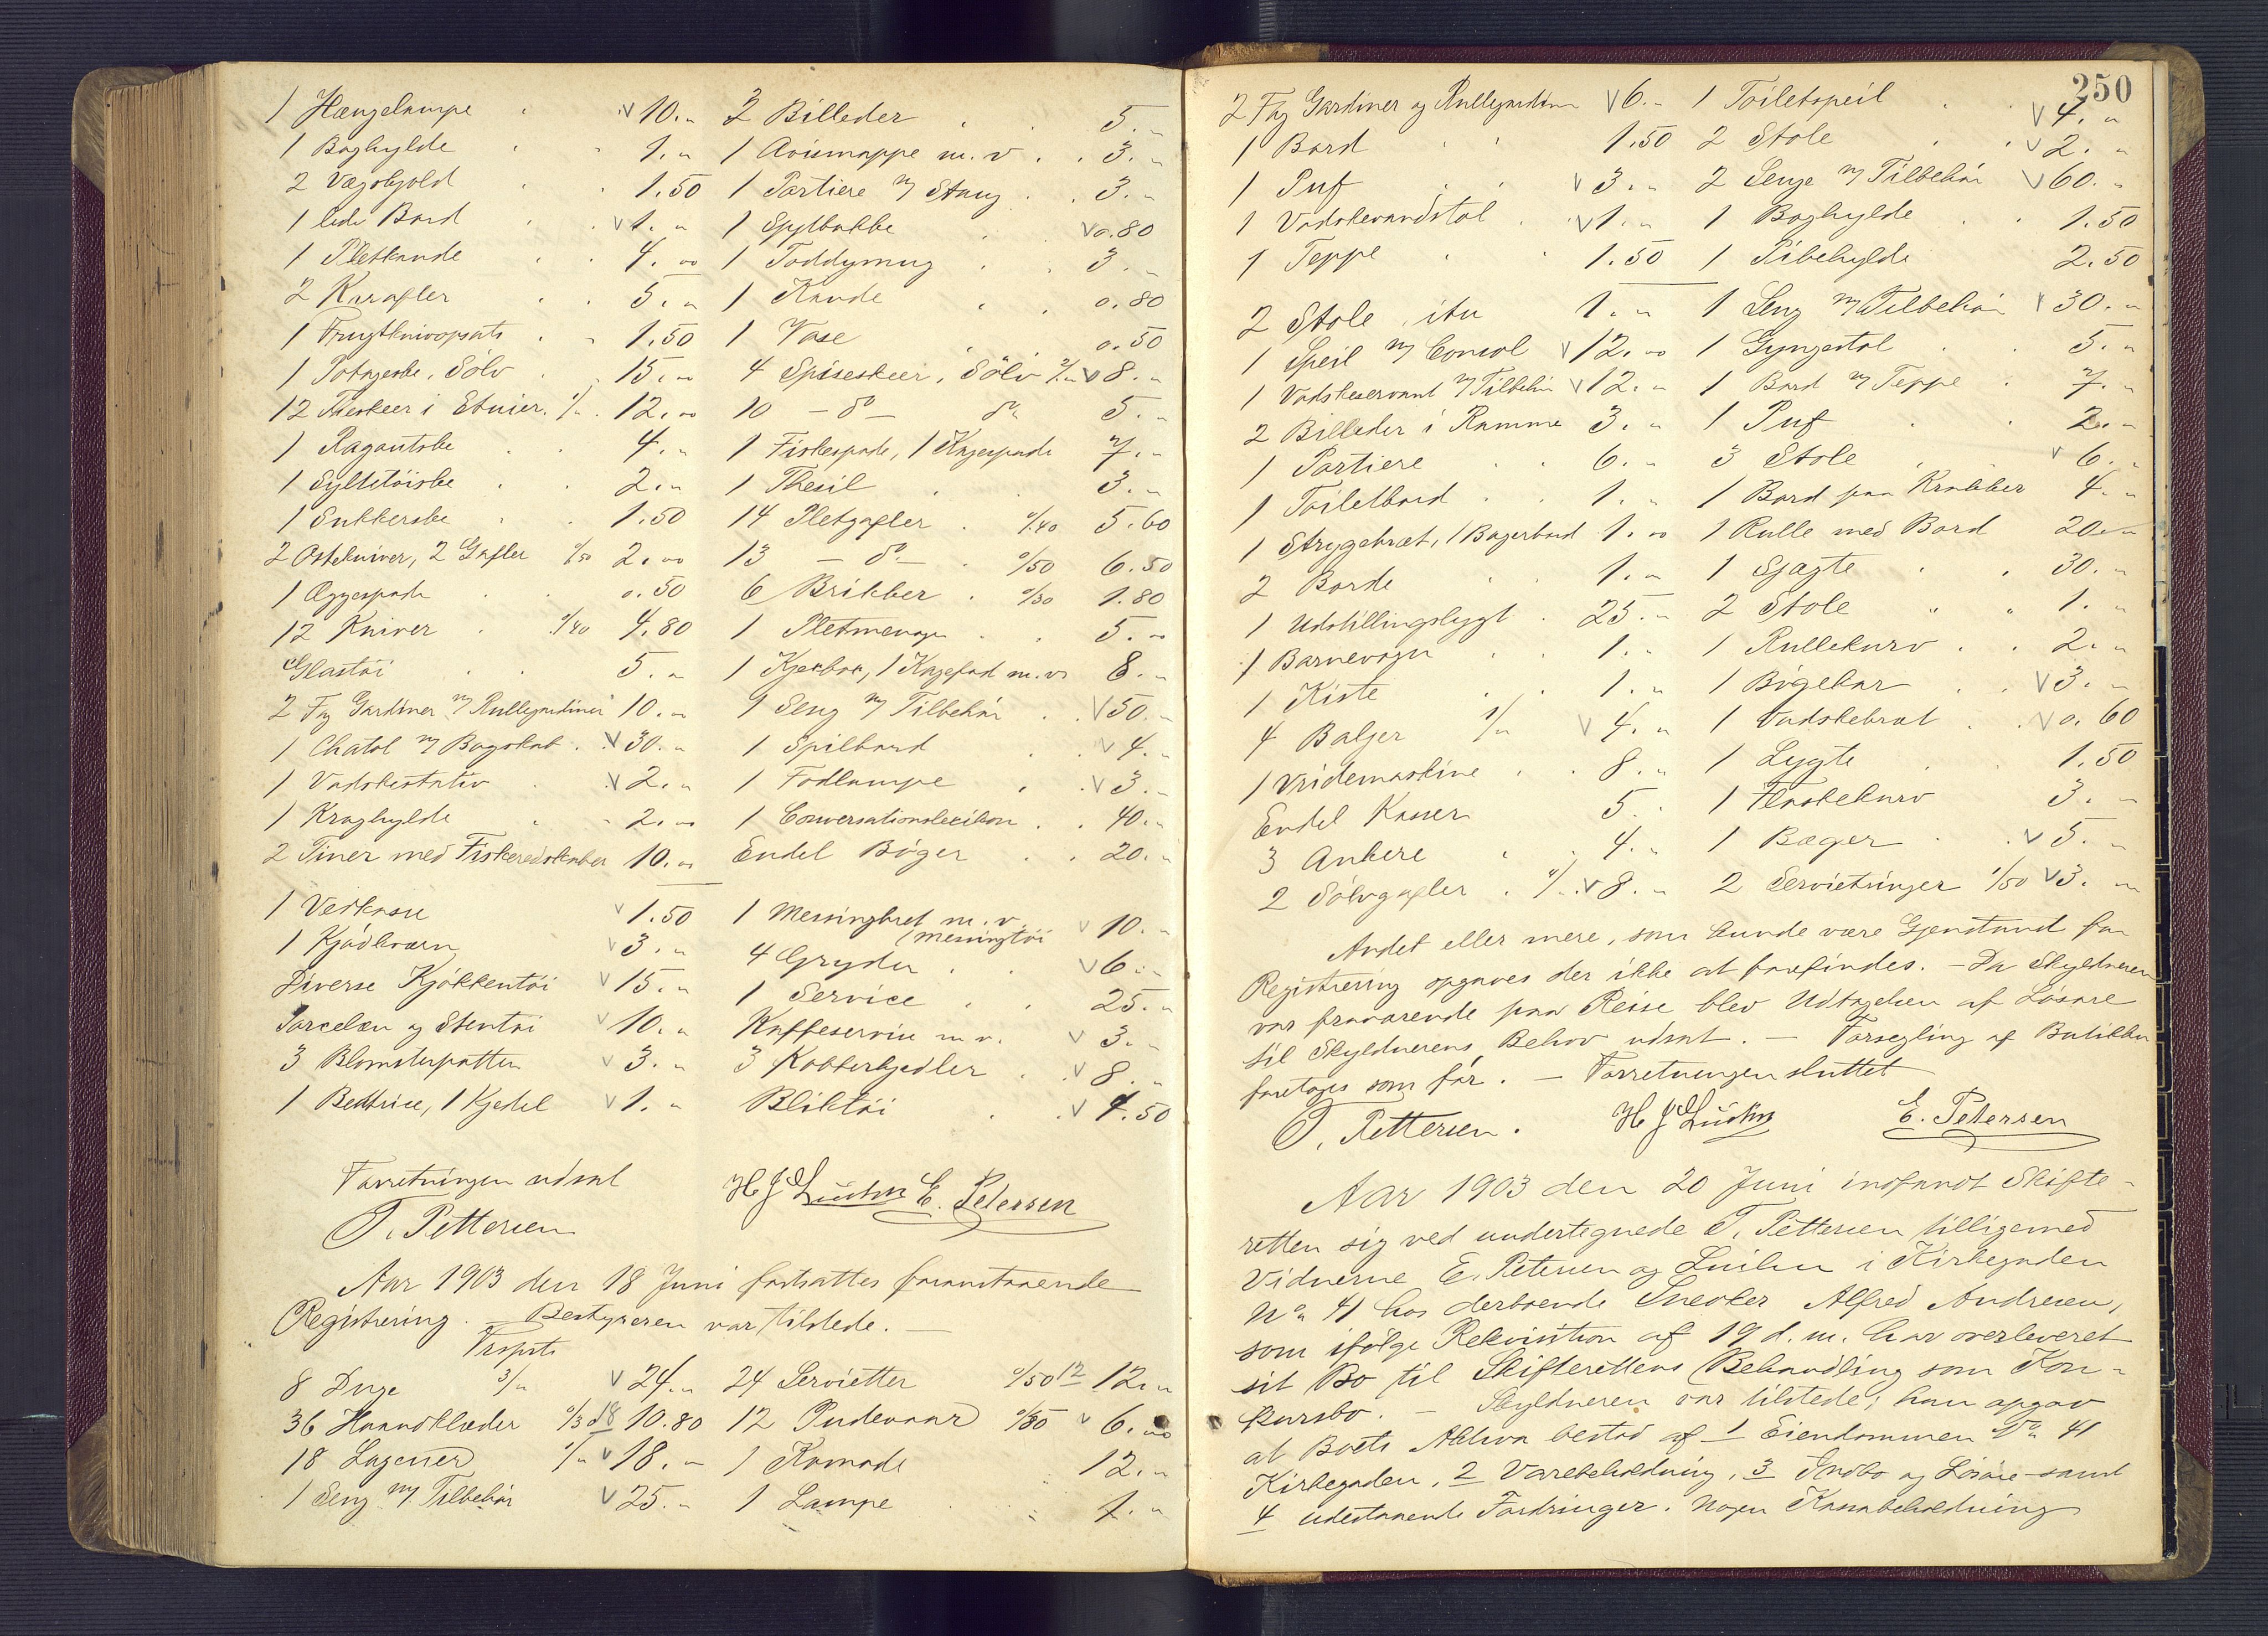 1 Hængelampe v 10.„ 3 Billeder 5.„
1 Boghylde 1.„ 1 Avismappe m.v. 3.„
2 Vægskjold 1.50 1 Portiere m/ Stang 3.„
1 lidt Bord v 1.„ 1 Spytbakke v 0.80
1 Pletkande 4.00 1 Toddymug 3.„
2 Karafler 5.„ 1 Kande 0.80
1 Frugtknivopsats 1.50 1 Vase 0.50
1 Potageske, Sölv 15.„ 4 Spiseskeer, Sölv 2/„ v 8.„
12 Theskeer i Etuier 1/„ 12.00 10 – do – do 5.„
1 Ragoutske 4.„ 1 Fiskespade, 1 Kagespade 7.„
1 Syltetöiske 2.„ 1 Thesil 3.„
1 Sukkerske 1.50 14 Pletgafler 0/40 5.60
2 Ostekniver, 2 Gafler 0/50 2.00 13 – do – 0/50 6.50
1 Æggespade 0.50 6 Brikker 0/30 1.80
12 Kniver 0/40 4.80 1 Pletmenage 5.00
Glastöi 5.„ 1 Kjæxbox, 1 Kagefad m.v. 8.„
2 Fag Gardiner m/ Rullegardiner 10.„ 1 Seng m/ Tilbehör v 50.„
1 Chatol m/ Bogskab v 30.„ 1 Spilbord v 4.„
1 Vadskestativ v 2.„ 1 Fodlampe v 3.„
1 Kraghylde 2.00 1 Conversationslexikon 40.„
2 Tiner med Fiskeredskaber 10.00 Endel Böger 20.„
1 Vedkasse v 1.50 1 Messingbret m.v. v 10.„
(Messingtöi
1 Kjödkværn v 3.„ 4 Gryder v 6.„
Diverse Kjökkentöi v 15.„ 1 Service 25.„
Porcelæn og Stentöi v 10.„ Kaffeservise m.v. v 3.„
3 Blomsterpotter v 3.„ 3 Kobberkjedler v 8.„
1 Bestrice, 1 Kjedel v 1.„ Bliktöi v 4.50
Forretningen udsat
T. Pettersen H J E. Petersen
Aar 1903 den 18 Juni fortsattes foranstaaende
Registrering. – Bestyreren var tilstede. –
8 Duge 3/„ v 24.„ 24 Servietter 0/50 12 12.„
36 Haandklæder 0/3 18 10.80 12 Pudevaar 0/50 v 6.00
18 Lagener 1/„ v 18.„ 1 Komode 12.„
1 Seng m/ Tilbehör v 25.„ 1 Lampe 1.„
250
2 Fag Gardiner og Rullegardiner v 6.„ 1 Toiletspeil v 4.„
1 Bord 1.50 2 Stole v 2.„
1 Puf v 3.„ 2 Senge m/ Tilbehör v 60.„
1 Vadskevandstol v 1.„ 1 Boghylde 1.50
1 Teppe 1.50 1 Pibehylde 2.50
2 Stole, itu 1.„ 1 Seng m/ Tilbehör v 30.„
1 Speil m/ Consol v 12.00 1 Gyngestol 5.„
1 Vadskeservant m/ Tilbehör v 12.„ 1 Bord m/ Teppe 7.„
2 Billeder i Ramme 3.„ 1 Puf 2.„
1 Portiere 6.„ 3 Stole v 6.„
1 Toiletbord 1.„ 1 Bord paa Krakker 4.„
1 Strygebræt, 1 Bagerbord 1.00 1 Rulle med Bord 20.„
2 Borde 1.„ 1 Sjægte 30.„
1 Udstillingslygt 25.„ 2 Stole 1.„
1 Barnevogn 1.„ 1 Rullekurv 2.„
1 Kiste 1.„ 1 Bögekar v 3.„
4 Baljer 1/„ v 4.„ 1 Vadskebræt v 0.60
1 Vridemaskine 8.„ 1 Lygte 1.50
Endel Kasser 5. 1 Flaskekurv 3.„
3 Ankere 4.„ 1 Bæger v 5.„
2 Sölvgafler 4/„ v 8.„ 2 Servietringer 1/50 v 3.„
Andet eller mere, som kunde være Gjenstand for
Registrering opgaves der ikke at forefindes. – Da Skyldneren
var fraværende paa Reise blev Udtagelsen af Lösöre
til Skyldnerens Behov udsat. – Forsegling af Butikken
foretoges som för. – Forretningen sluttet
T. Pettersen. H J E. Petersen
Aar 1903 den 20 Juni indfandt Skifte-
retten sig ved undertegnede T. Pettersen tilligemed
Vidnerne E. Petersen og i Kirkegaden
No 41 hos derboende Snedker Alfred Andresen,
som ifölge Rekvisition af 19 d.m. har overleveret
sit Bo til Skifterettens Behandling som Kon-
kursbo. – Skyldneren var tilstede; han opgav
at Boets Aktiva bestod af 1 Eiendommen No 41
Kirkegaden, 2 Varebeholdning, 3 Indbo og Lösöre samt
4 udestaaende Fordringer. Nogen Kassabeholdning